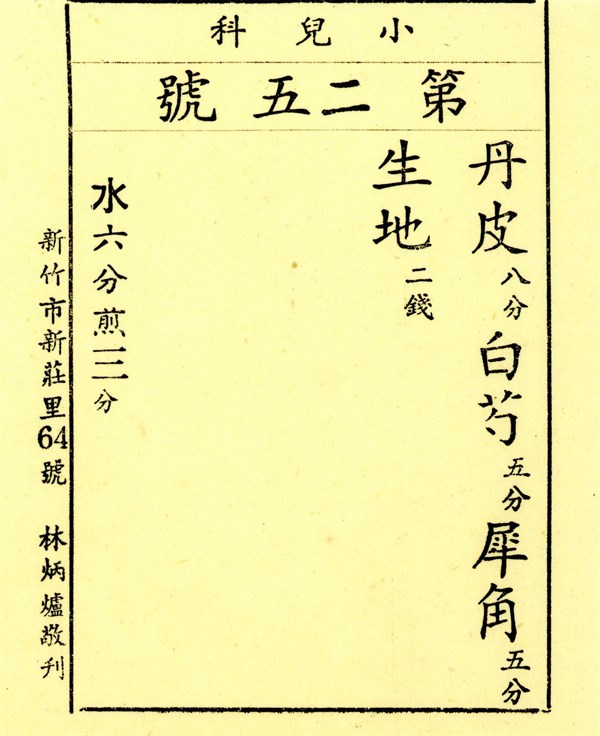 小兒科
第二五號
丹皮八分白芍五分犀角五分
生地二錢
水六分煎三分
新竹市新莊里64號 林炳爐敬刊